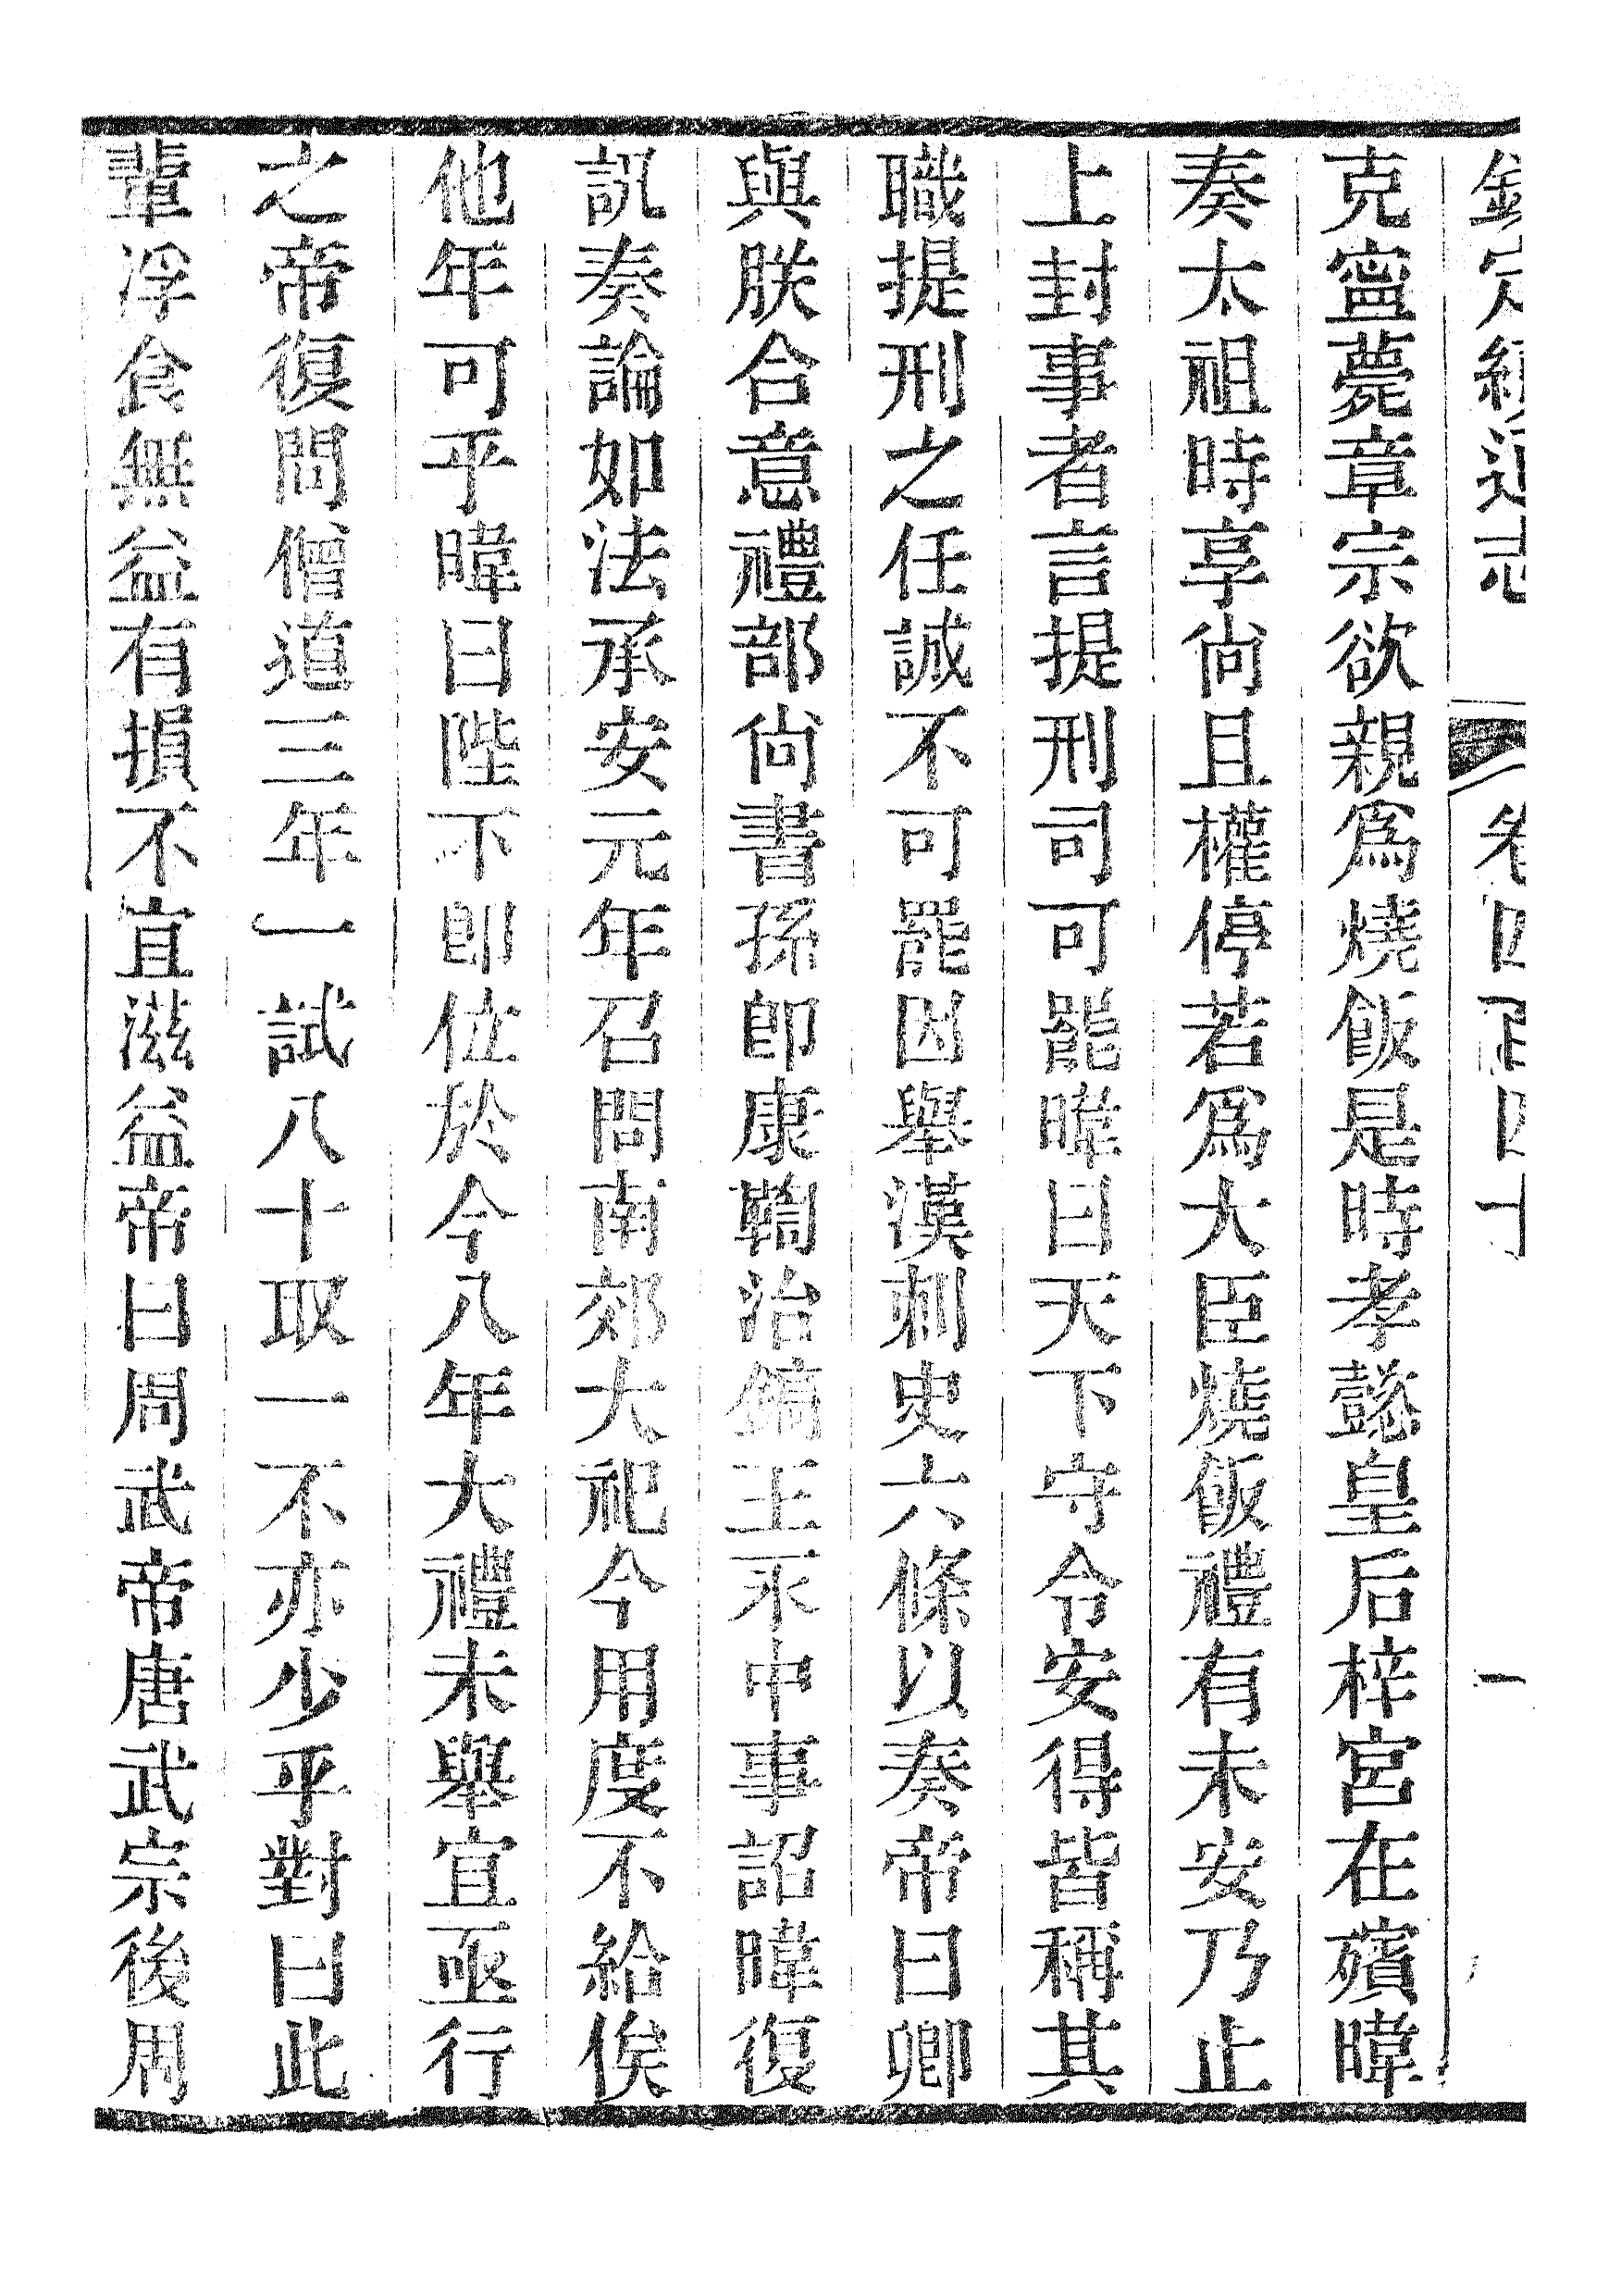 欽定續通志 卷四百四十 一
克寧薨章宗欲親爲燒飯是時孝懿皇后梓宮在殯暐
奏太祖時享尙且權停若爲大臣燒飯禮有未安乃止
上封事者言提刑司可罷暐曰天下守令安得皆稱其
職提刑之任誠不可罷因舉漢刺史六條以奏帝曰卿
與朕合意禮部尙書孫卽康鞫治鎬王永中事詔暐復
訊奏論如法承安元年召問南郊大祀今用度不給俟
他年可乎暐曰陛下卽位於今八年大禮未舉宜亟行
之帝復問僧道三年一試八十取一不亦少乎對曰此
輩浮食無益有損不宜滋益帝曰周武帝唐武宗後周